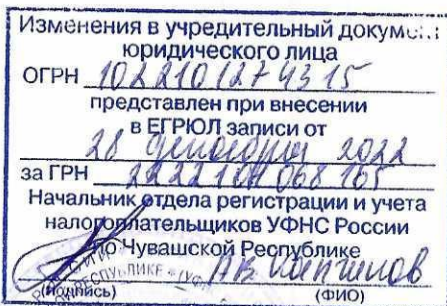 Изменения в учредительный докумен
юридического лица
ОГРН 1022101274315
представлен при внесении
в ЕГРЮЛ записи от
28 декабря 2022
за ГРН 2222101068165
Начальник отдела регистрации и учета
налогоплательщиков УФНС России
по Чувашской Республике
А.В.
(подпись) (ФИО)